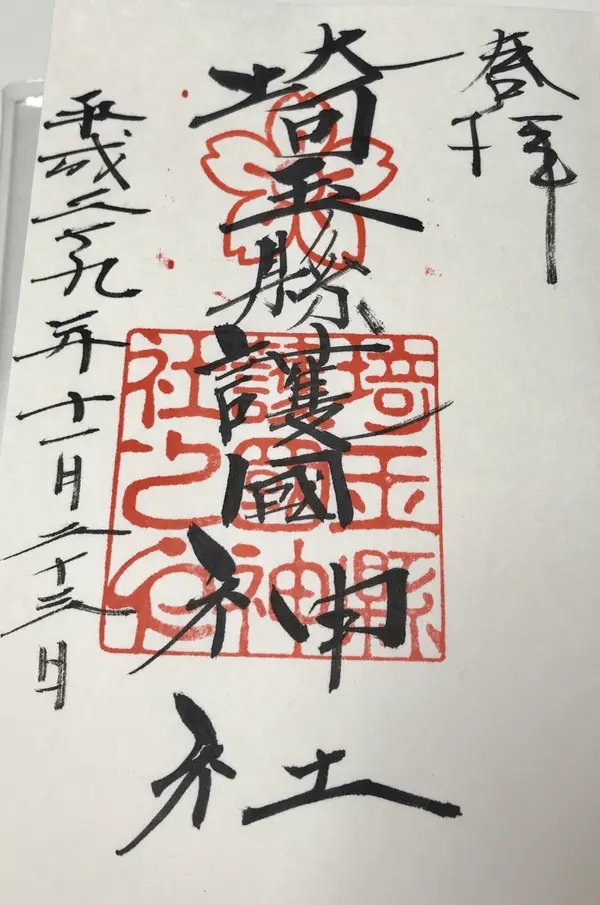 奉拝
埼玉縣護國神社
埼玉縣
護國神
社之印
平成二十九年十一月二十三日